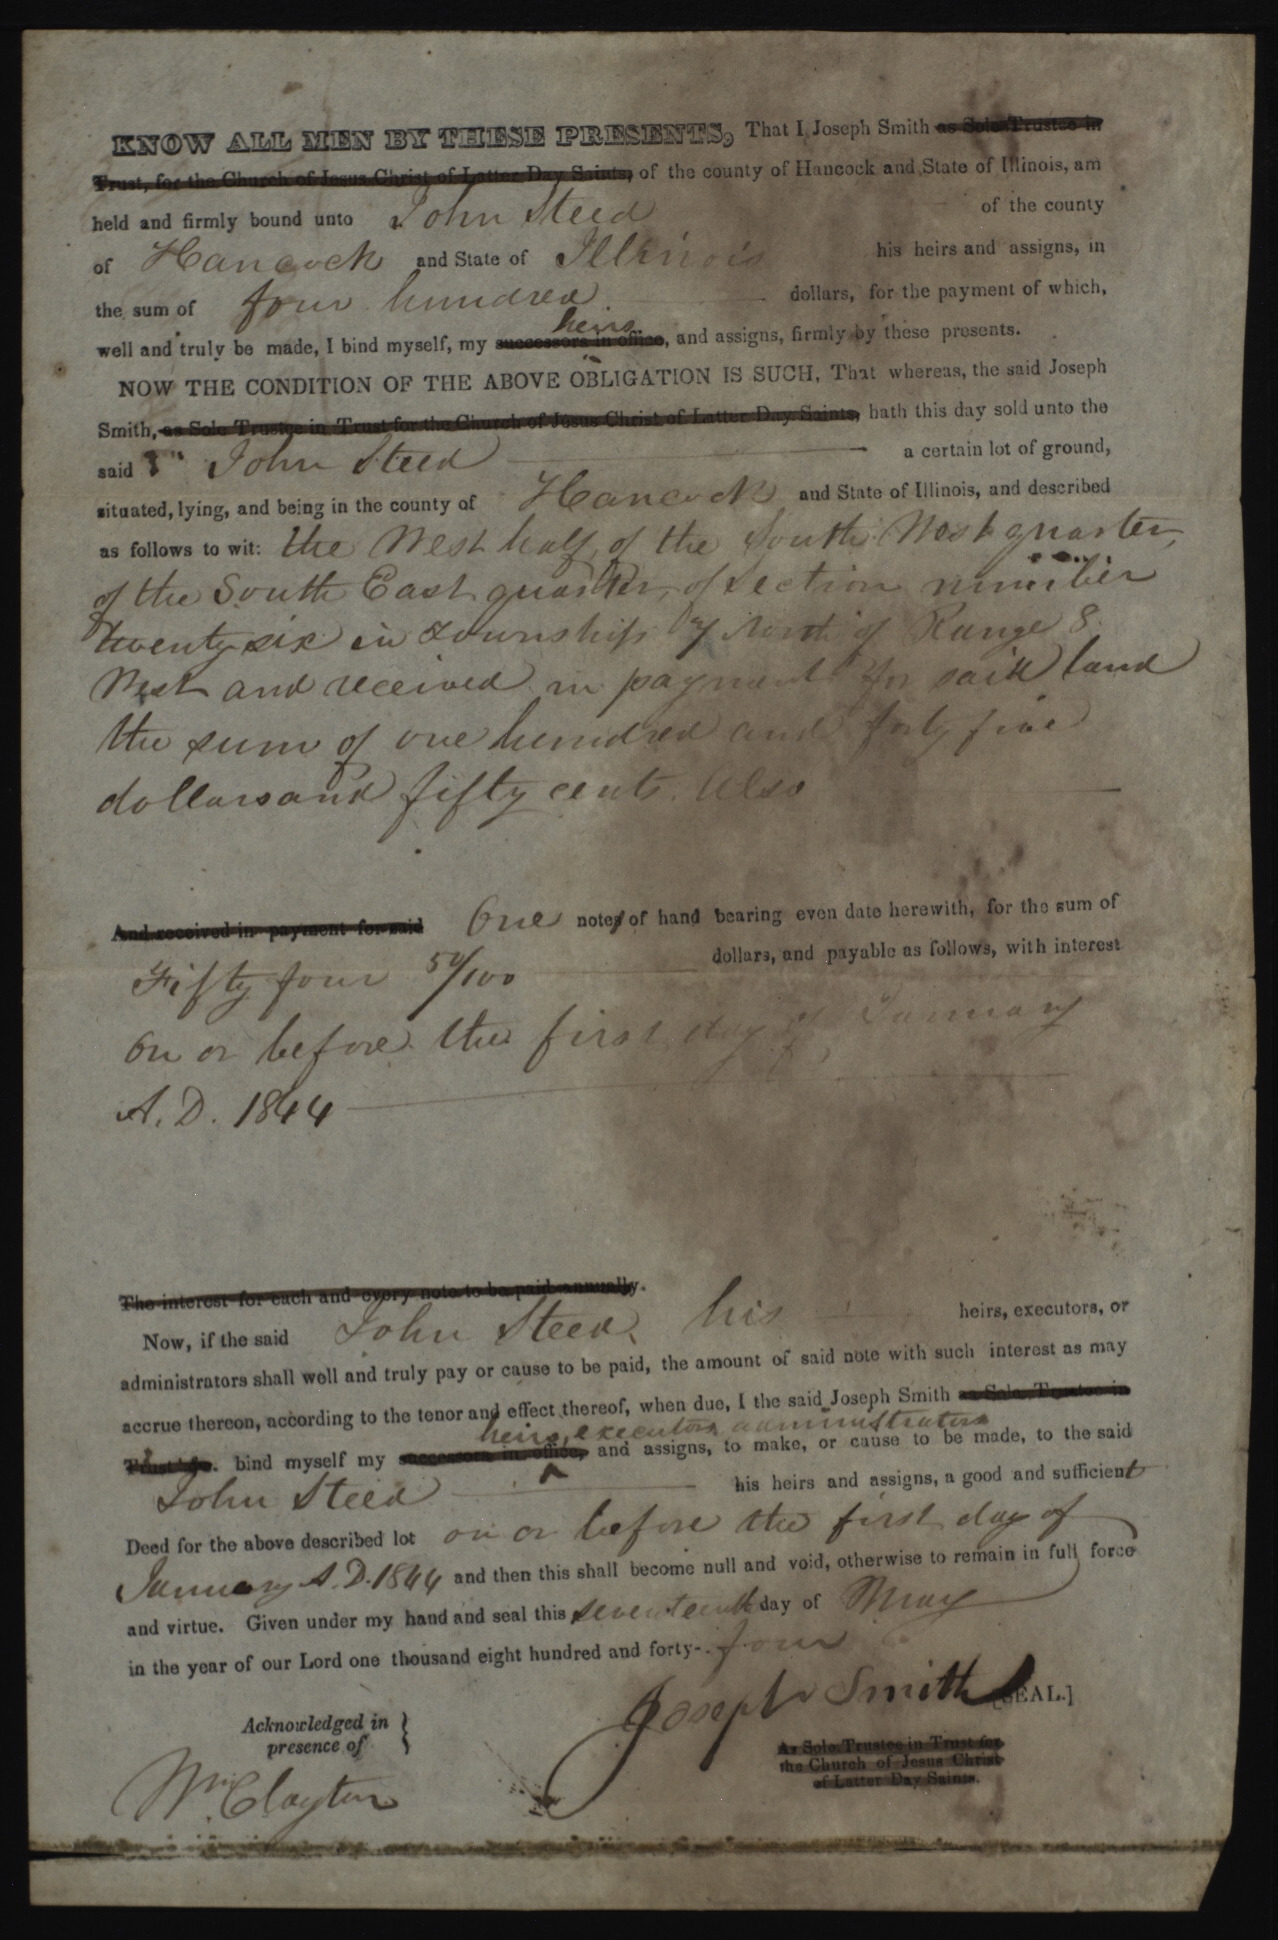 KNOW ALL MEN BY THESE PRESENTS, That I, Joseph Smith as Sole Trustee in
Trust, for the Church of Jesus Christ of Latter Day Saints, of the county of Hancock and State of Illinois, am
held and firmly bound unto John Steed of the county
of Hancock and State of Illinois his heirs and assigns, in
the sum of four hundred dollars, for the payment of which,
heirs
well and truly be made, I bind myself, my successors in office, and assigns, firmly by these presents.
NOW THE CONDITION OF THE ABOVE OBLIGATION IS SUCH, That whereas, the said Joseph
Smith, as Sole Trustee in Trust for the Church of Jesus Christ of Latter Day Saints, hath this day sold unto the
said John Steed a certain lot of ground,
situated, lying, and being in the county of Hancock and State of Illinois, and described
as follows to wit: the West half of the South West quarter
of the South East quarter of section number
twenty six in Township 7 North of Range 8
West and received in payment for said land
the sum of one hundred and forty five
dollars and fifty cents. Also
And received in payment for said One notes of hand bearing even date herewith, for the sum of
Fifty four 50/100 dollars, and payable as follows, with interest
On or before the first day of January
A.D. 1844
The interest for each and every note to be paid annually.
Now, if the said John Steed, his heirs, executors, or
administrators shall well and truly pay or cause to be paid, the amount of said note with such interest as may
accrue thereon, according to the tenor and effect thereof, when due, I the said Joseph Smith as Sole Trustee in
heirs, executors administrators
Trust &c. bind myself my successors in office, and assigns, to make, or cause to be made, to the said
John Steed his heirs and assigns, a good and sufficient
Deed for the above described lot on or before the first day of
January A.D. 1844 and then this shall become null and void, otherwise to remain in full force
and virtue. Given under my hand and seal this seventeenth day of May
in the year of our Lord one thousand eight hundred and forty-four
Joseph Smith [SEAL.]
Acknowledged in
presence of
As Sole Trustee in Trust for
the Church of Jesus Christ
of Latter Day Saints.
Wm. Clayton